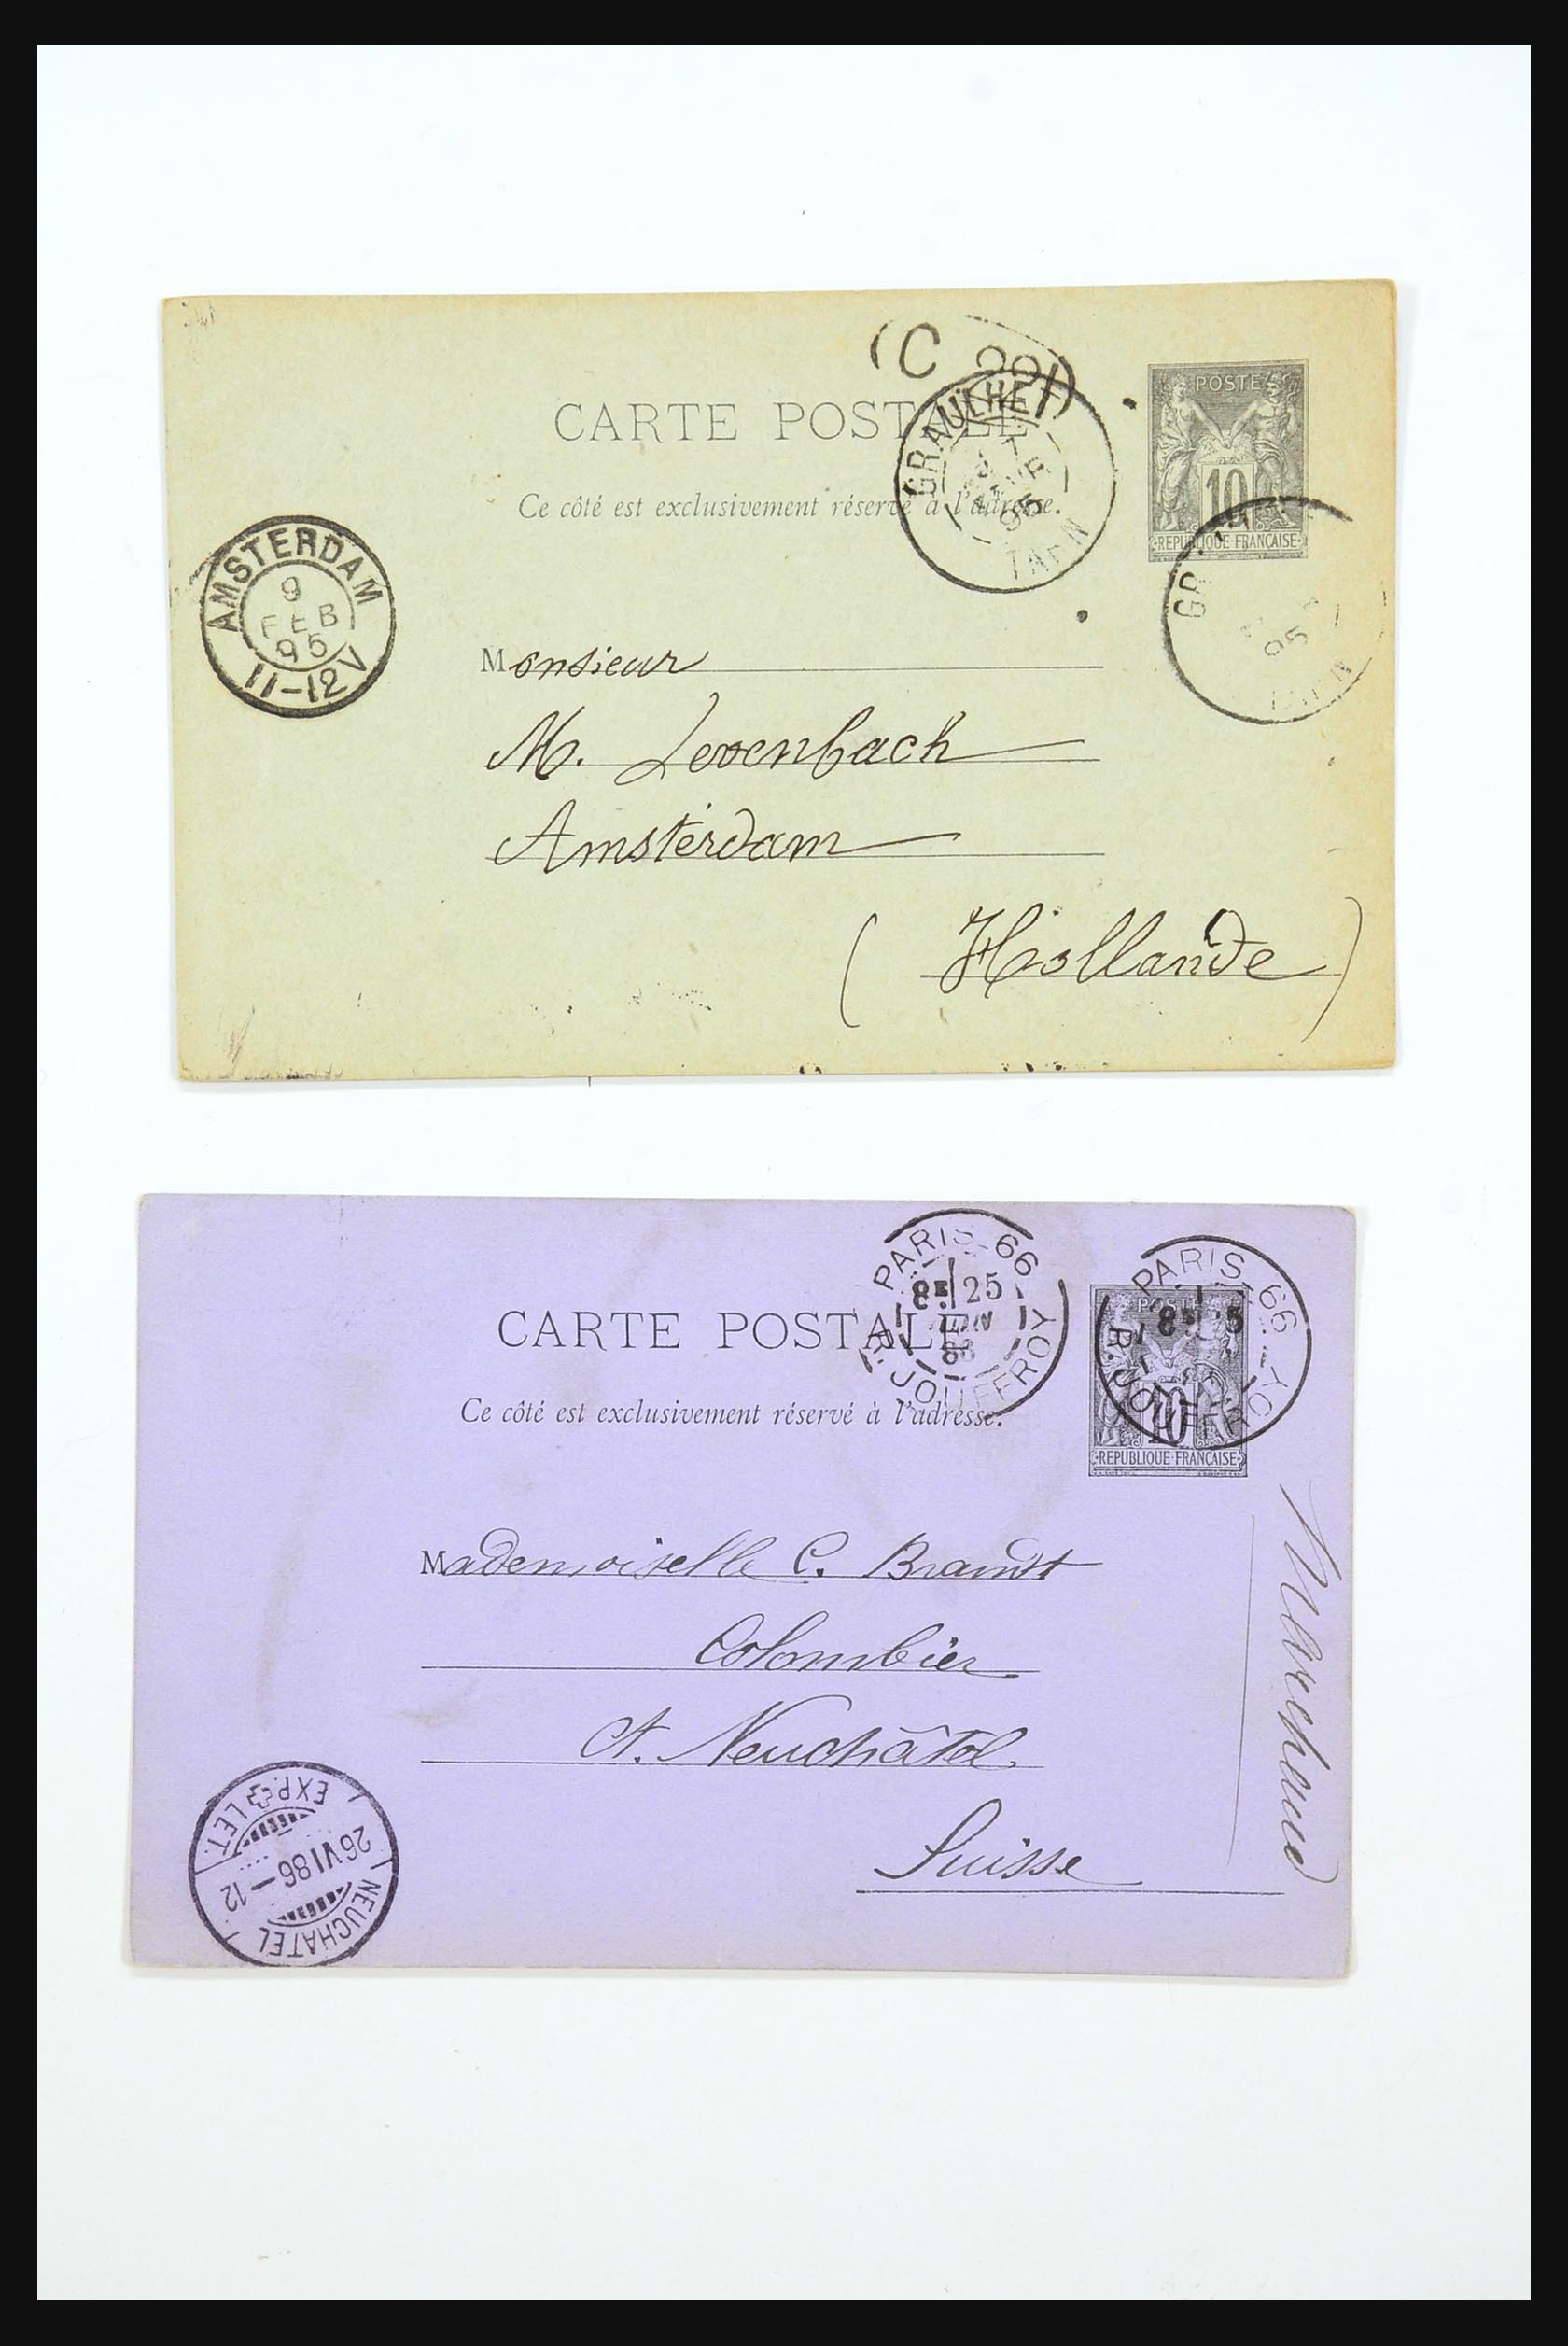 (C 221)
CARTE POSTALE
Ce côté est exclusivement réservé à l'adresse.
POSTE
10
REPUBLIQUE FRANÇAISE
GRAULHET
FEVR
95
TARN
GR
95
TARN
AMSTERDAM
9
FEB
95
11-12V
Monsieur
M. Levenbach
Amsterdam
(Hollande)
CARTE POSTALE
Ce côté est exclusivement réservé à l'adresse.
PARIS 66
8E 25
JUIN
86
R. JOUFFROY
PARIS 66
R. JOUFFROY
POSTE
10
REPUBLIQUE FRANÇAISE
Mademoiselle C. Brandt
Colombier
Ct. Neuchâtel.
Suisse
Marchand
EXP. LET.
26 VI 86 – 12
NEUCHATEL